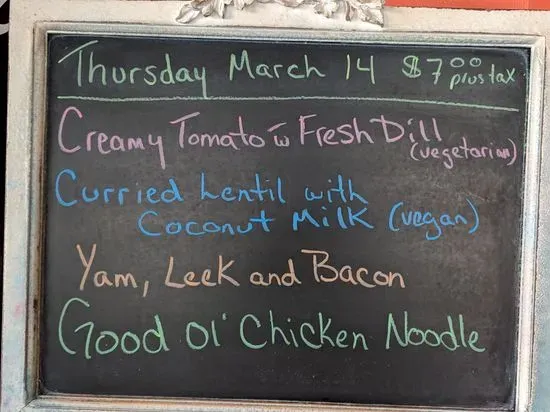 Thursday March 14 $7.00 plus tax
Creamy Tomato w Fresh Dill (vegetarian)
Curried Lentil with
Coconut Milk (vegan)
Yam, Leek and Bacon
Good Ol' Chicken Noodle